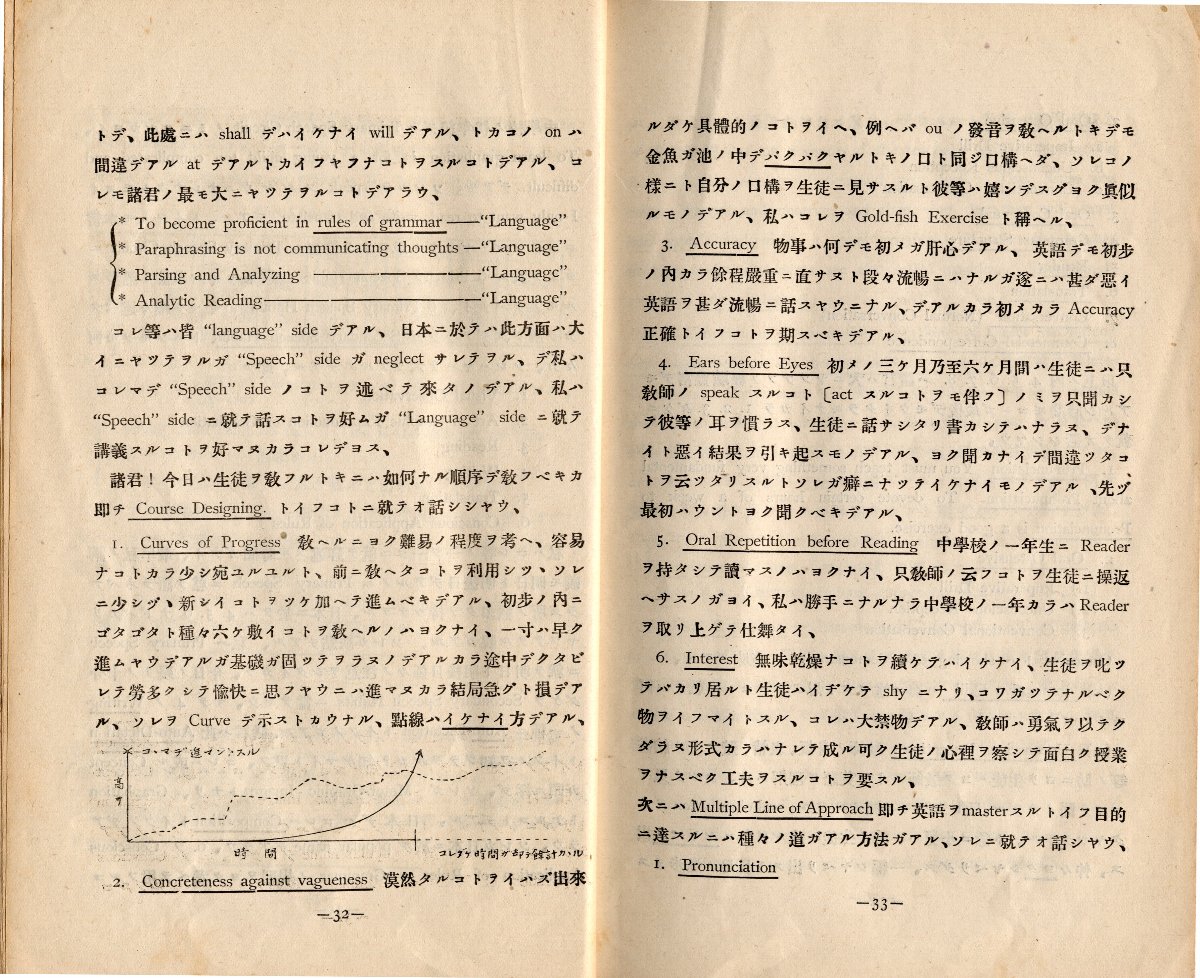 トデ、此處ニハ shall デハイケナイ will デアル、トカコノ on ハ
間違デアル at デアルトカイフヤフナコトヲスルコトデアル、コ
レモ諸君ノ最モ大ニヤツテヲルコトデアラウ、
* To become proficient in rules of grammar —“Language”
* Paraphrasing is not communicating thoughts —“Language”
* Parsing and Analyzing —“Language”
* Analytic Reading —“Language”
コレ等ハ皆 “language” side デアル、日本ニ於テハ此方面ハ大
イニヤツテヲルガ “Speech” side ガ neglect サレテヲル、デ私ハ
コレマデ “Speech” side ノコトヲ述ベテ來タノデアル、私ハ
“Speech” side ニ就テ話スコトヲ好ムガ “Language” side ニ就テ
講義スルコトヲ好マヌカラコレデヨス、
諸君！今日ハ生徒ヲ敎フルトキニハ如何ナル順序デ敎フベキカ
即チ Course Designing. トイフコトニ就テオ話シシヤウ、
1. Curves of Progress 敎ヘルニヨク難易ノ程度ヲ考ヘ、容易
ナコトカラ少シ宛ユルユルト、前ニ敎ヘタコトヲ利用シツヽソレ
ニ少シヅヽ新シイコトヲツケ加ヘテ進ムベキデアル、初步ノ內ニ
ゴタゴタト種々六ケ敷イコトヲ敎ヘルノハヨクナイ、一寸ハ早ク
進ムヤウデアルガ基礎ガ固ツテヲラヌノデアルカラ途中デクタビ
レテ勞多クシテ愉快ニ思フヤウニハ進マヌカラ結局急グト損デア
ル、ソレヲ Curve デ示ストカウナル、點線ハイケナイ方デアル、
コヽマデ進マントスル
高サ
時間
コレダケ時間ガ却テ餘計カヽル
2. Concreteness against vagueness 漠然タルコトヲイハズ出來
—32—
ルダケ具體的ノコトヲイヘ、例ヘバ ou ノ發音ヲ敎ヘルトキデモ
金魚ガ池ノ中デパクパクヤルトキノ口ト同ジ口構ヘダ、ソレコノ
樣ニト自分ノ口構ヲ生徒ニ見サスルト彼等ハ嬉ンデスグヨク眞似
ルモノデアル、私ハコレヲ Gold-fish Exercise ト稱ヘル、
3. Accuracy 物事ハ何デモ初メガ肝心デアル、英語デモ初步
ノ內カラ餘程嚴重ニ直サヌト段々流暢ニハナルガ遂ニハ甚ダ惡イ
英語ヲ甚ダ流暢ニ話スヤウニナル、デアルカラ初メカラ Accuracy
正確トイフコトヲ期スベキデアル、
4. Ears before Eyes 初メノ三ケ月乃至六ケ月間ハ生徒ニハ只
敎師ノ speak スルコト〔act スルコトヲモ伴フ〕ノミヲ只聞カシ
テ彼等ノ耳ヲ慣ラス、生徒ニ話サシタリ書カシテハナラヌ、デナ
イト惡イ結果ヲ引キ起スモノデアル、ヨク聞カナイデ間違ツタコ
トヲ云ツタリスルトソレガ癖ニナツテイケナイモノデアル、先ヅ
最初ハウントヨク聞クベキデアル、
5. Oral Repetition before Reading 中學校ノ一年生ニ Reader
ヲ持タシテ讀マスノハヨクナイ、只敎師ノ云フコトヲ生徒ニ操返
ヘサスノガヨイ、私ハ勝手ニナルナラ中學校ノ一年カラハ Reader
ヲ取リ上ゲテ仕舞タイ、
6. Interest 無味乾燥ナコトヲ續ケテハイケナイ、生徒ヲ叱ツ
テバカリ居ルト生徒ハイヂケテ shy ニナリ、コワガツテナルベク
物ヲイフマイトスル、コレハ大禁物デアル、敎師ハ勇氣ヲ以テク
ダラヌ形式カラハナレテ成ル可ク生徒ノ心裡ヲ察シテ面白ク授業
ヲナスベク工夫ヲスルコトヲ要スル、
次ニハ Multiple Line of Approach 即チ英語ヲmasterスルトイフ目的
ニ達スルニハ種々ノ道ガアル方法ガアル、ソレニ就テオ話シヤウ、
1. Pronunciation
—33—